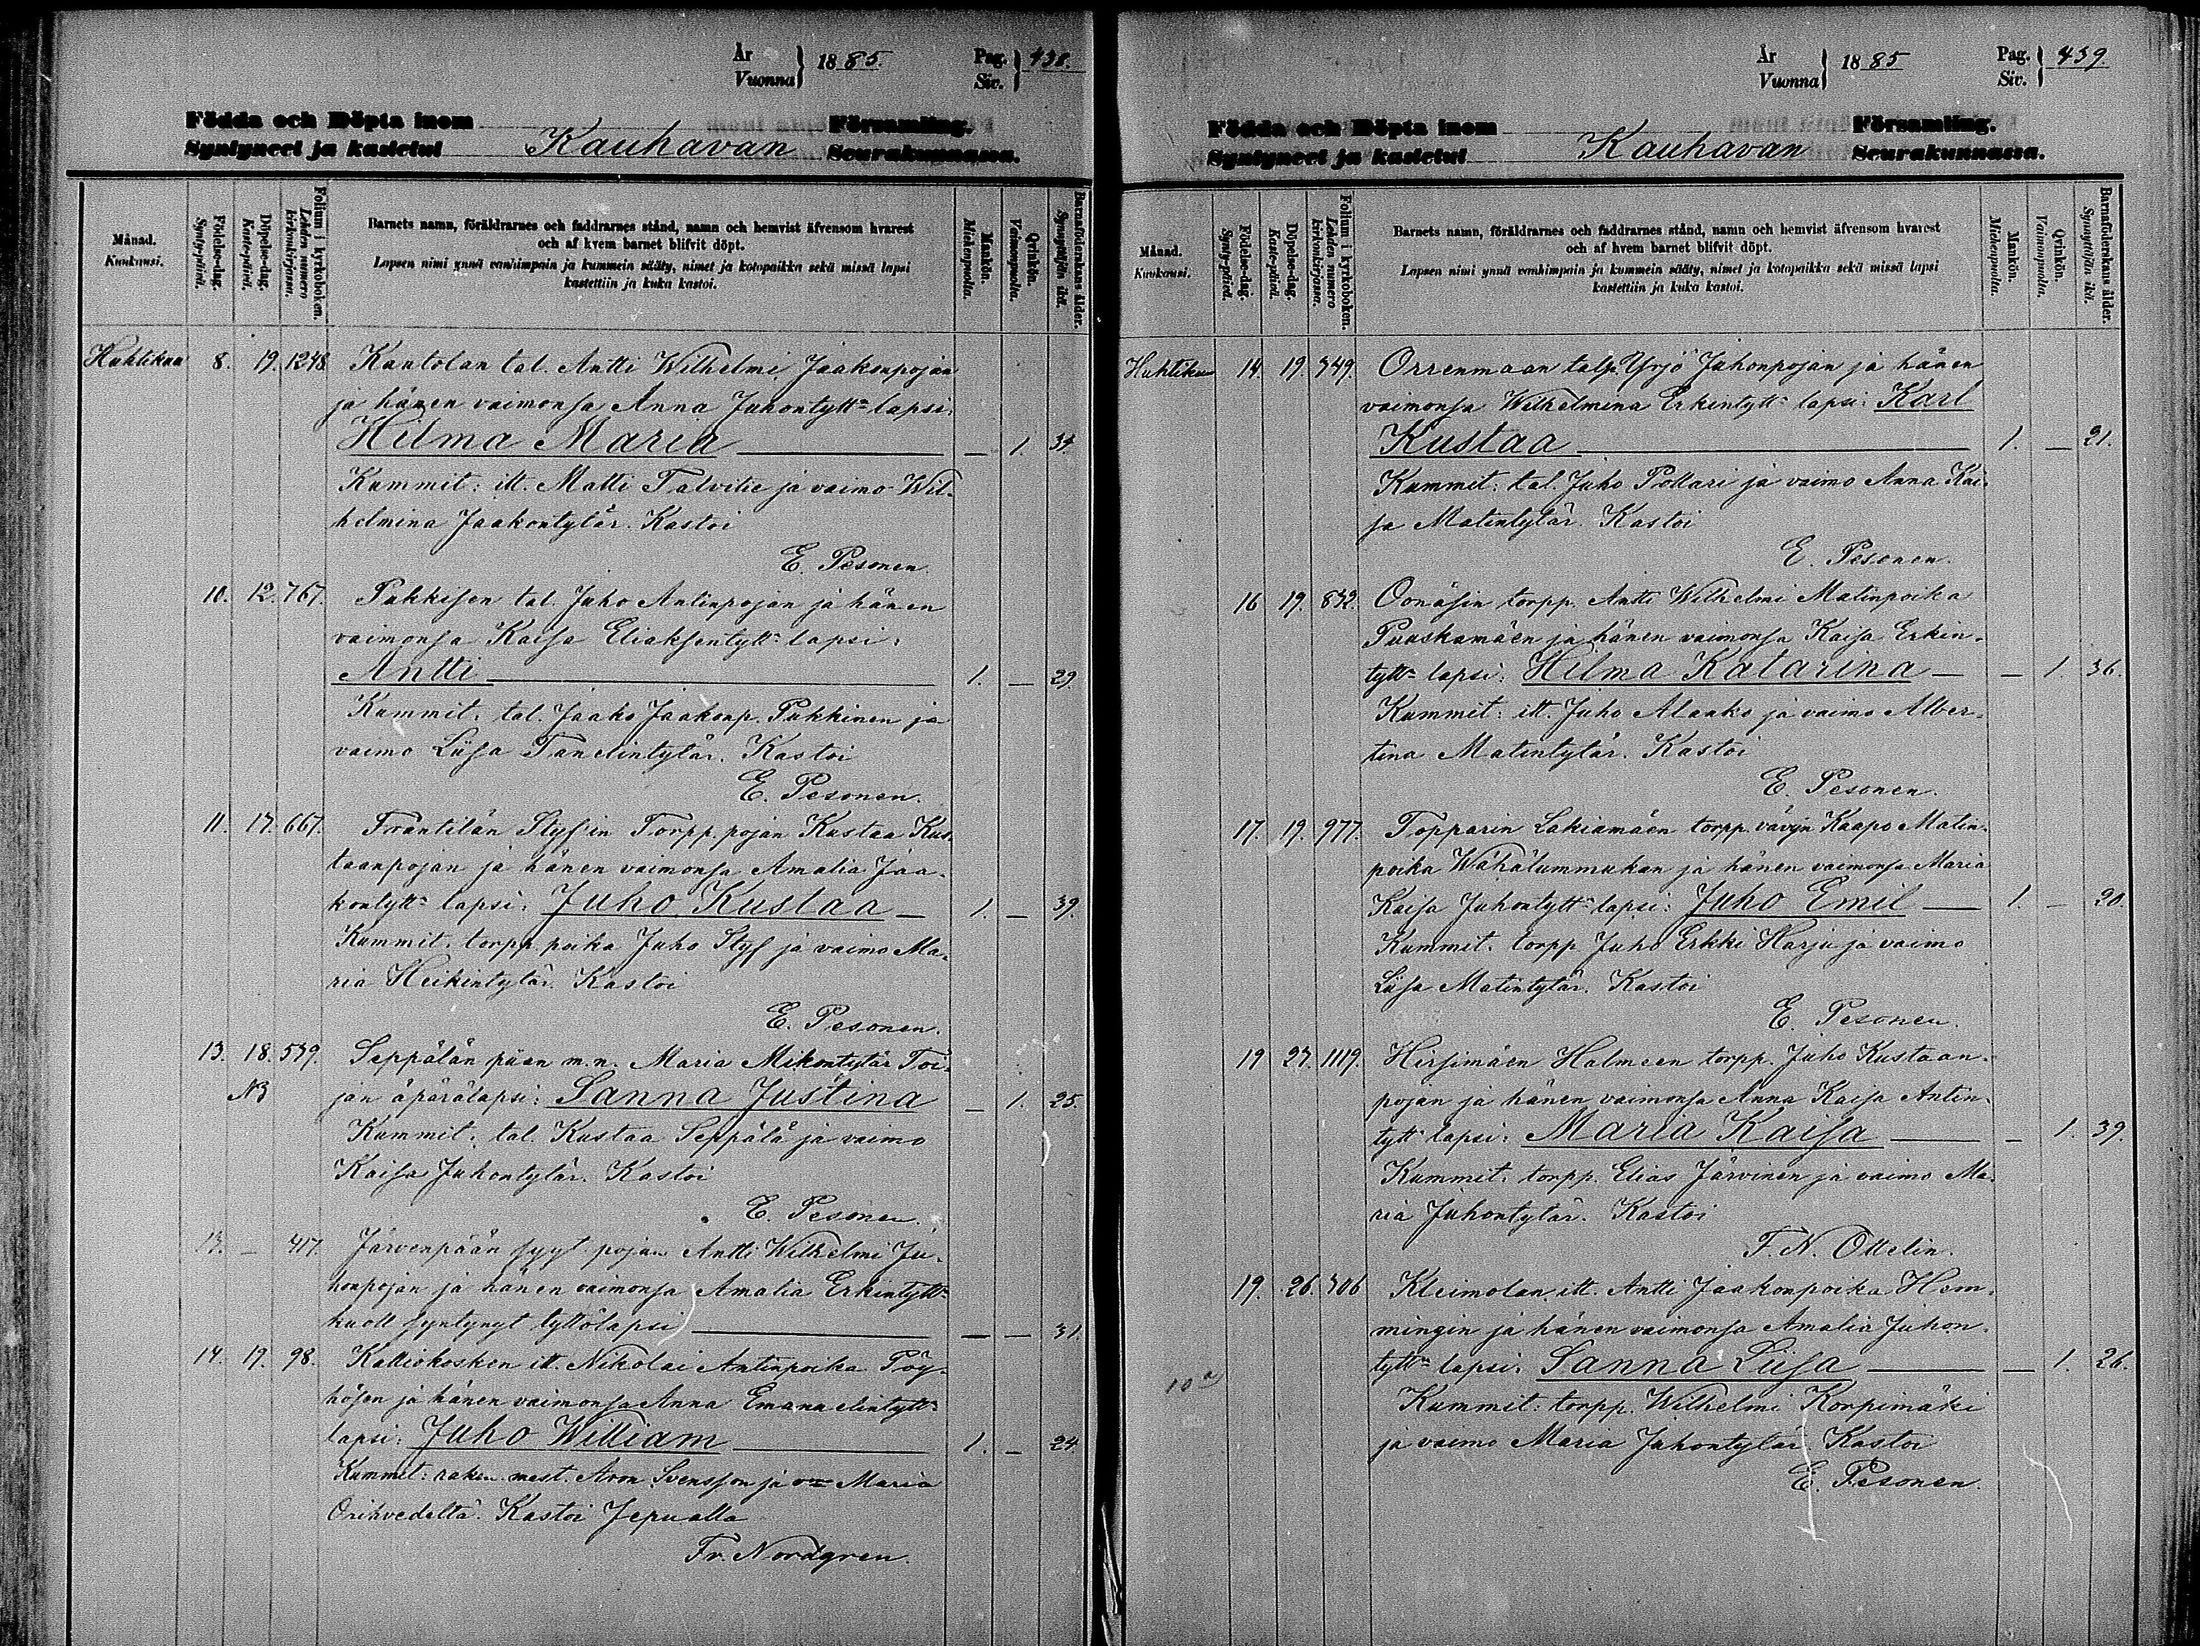 År
Vuonna } 1885. Pag. Siv. } 438.
Födda och Döpta inom Församling.
Syntyneet ja kastetut Kauhavan Seurakunnassa.
Månad.
Kuukausi.
Födelse-dag.
Syntypäivä.
Döpelse-dag.
Kastepäivä.
Folium i kyrkoboken.
Lehden numero kirkonkirjassa.
Barnets namn, föräldrarnes och faddrarnes stånd, namn och hemvist äfvensom hvarest
och af hvem barnet blifvit döpt.
Lapsen nimi ynnä vanhimpain ja kummein sääty, nimet ja kotopaikka sekä missä lapsi
kastettiin ja kuka kastoi.
Mankön.
Miehenpuolta.
Qvinkön.
Vaimonpuolta.
Barnaföderskans ålder.
Synnyttäjän ikä.
Huhtikuu 8. 19. 1248 Kantolan tal. Antti Wilhelmi Jaakonpojan
ja hänen vaimonsa Anna Juhontytt:n lapsi:
Hilma Maria — 1. 34.
Kummit: itt. Matti Talvitie ja vaimo Wil-
helmina Jaakontytär. Kastoi
E. Pesonen.
10. 12. 767. Pukkisen tal. Juho Antinpojan ja hänen
vaimonsa Kaisa Eliaksentytt:n lapsi:
Antti 1. — 29.
Kummit: tal. Jaako Jaakonp. Pukkinen ja
vaimo Liisa Tanelintytär. Kastoi
E. Pesonen.
11. 17. 667. Frantilän Styf'in Torpp. pojan Kustaa Kus-
taanpojan ja hänen vaimonsa Amalia Jaa-
kontytt:n lapsi: Juho Kustaa — 1. — 39.
Kummit: torpp. poika Juho Styf ja vaimo Ma-
ria Heikintytär. Kastoi
E. Pesonen.
13. 18. 539. Seppälän piian m.n. Maria Mikontytär Toi-
NB jan äpärälapsi: Sanna Justina — 1. 25.
Kummit: tal. Kustaa Seppälä ja vaimo
Kaisa Juhontytär. Kastoi
E. Pesonen.
13. — 417. Järvenpään syyt. pojan Antti Wilhelmi Ju-
honpojan ja hänen vaimonsa Amalia Erkintytt:n
kuoll. syntynyt tyttölapsi — — 31.
14. 19. 98. Kalliokosken itt. Nikolai Antinpoika Pöy-
hösen ja hänen vaimonsa Anna Emanuelintytt:n
lapsi: Juho William 1. — 24
Kummit: raken. mest. Aron Svensson ja v:mo Maria
Orihvedeltä. Kastoi Jepualla
Fr. Nordgren.
År
Vuonna } 1885 Pag. Siv. } 439.
Födda och Döpta inom Församling.
Syntyneet ja kastetut Kauhavan Seurakunnassa.
Månad.
Kuukausi.
Födelse-dag.
Synty-päivä.
Döpelse-dag.
Kaste-päivä.
Folium i kyrkoboken.
Lehden numero kirkonkirjassa.
Barnets namn, föräldrarnes och faddrarnes stånd, namn och hemvist äfvensom hvarest
och af hvem barnet blifvit döpt.
Lapsen nimi ynnä vanhimpain ja kummein sääty, nimet ja kotopaikka sekä missä lapsi
kastettiin ja kuka kastoi.
Mankön.
Miehenpuolta.
Qvinkön.
Vaimonpuolta.
Barnaföderskans ålder.
Synnyttäjän ikä.
Huhtiku 14. 19. 349. Orrenmaan talp. Yrjö Juhonpojan ja hänen
vaimonsa Wilhelmina Erkintytt:n lapsi: Karl
Kustaa 1. — 21.
Kummit: tal. Juho Pollari ja vaimo Anna Kai-
sa Matintytär. Kastoi
E. Pesonen.
16 19. 832. Oonäsin torpp. Antti Wilhelmi Matinpoika
Puuskamäen ja hänen vaimonsa Kaisa Erkin-
tytt:n lapsi: Hilma Katarina — — 1. 36.
Kummit: itt. Juho Alanko ja vaimo Alber-
tina Matintytär. Kastoi
E. Pesonen.
17. 19. 977. Topparin Lakiamäen torpp. vävyn Kaapo Matin-
poika Wähälummukan ja hänen vaimonsa Maria
Kaisa Juhontytt:n lapsi: Juho Emil — 1. — 20.
Kummit: torpp. Juho Erkki Harju ja vaimo
Liisa Matintytär. Kastoi
E. Pesonen.
19 27. 1119. Hirsimäen Halmeen torpp. Juho Kustaan-
pojan ja hänen vaimonsa Anna Kaisa Antin-
tytt:n lapsi: Maria Kaisa — — 1. 39.
Kummit: torpp. Elias Järvinen ja vaimo Ma-
ria Juhontytär. Kastoi
F. N. Ottelin.
19. 26. 306 Kleimolan itt. Antti Jaakonpoika Hem-
mingin ja hänen vaimonsa Amalia Juhon-
tytt:n lapsi: Sanna Liisa — — 1. 26.
Kummit: torpp. Wilhelmi Korpimäki
ja vaimo Maria Juhontytär. Kastoi
E. Pesonen.